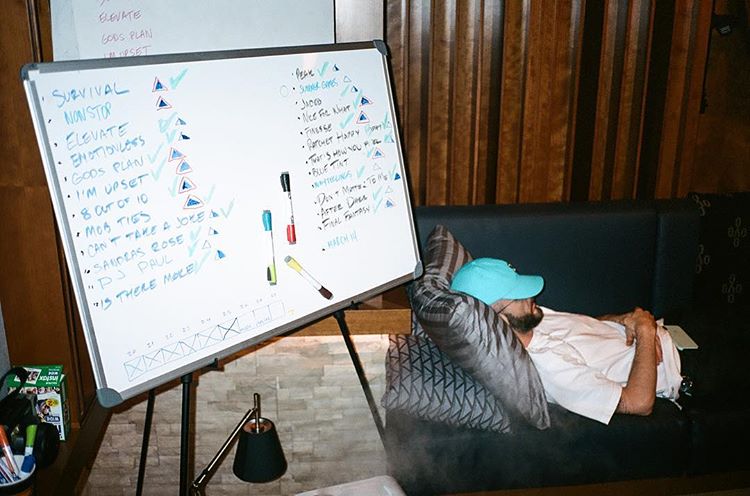 ELEVATE
GODS PLAN
I'M UPSET
SURVIVAL
NONSTOP
ELEVATE
EMOTIONLESS
GODS PLAN
I'M UPSET
8 OUT OF 10
MOB TIES
CAN'T TAKE A JOKE
SANDRAS ROSE
DJ PAUL
IS THERE MORE
PEAK
SUMMER GAMES
JADED
NICE FOR WHAT
FINESSE
RATCHET HAPPY
THAT'S HOW YOU FEEL
BLUE TINT
DON'T MATTER TO ME
AFTER DARK
FINAL FANTASY
MARCH 14
instax